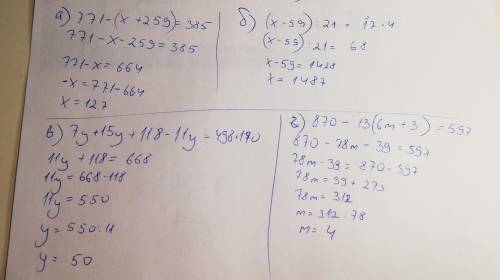 а) 771-(x+259)=385
771-x-259=385
771-x=664
-x=771-664
x=127
б) (x-59):21=17·4
(x-59):21=68
x-59=1428
x=1487
в) 7y+15y+118-11y=498+170
11y+118=668
11y=668-118
11y=550
y=550:11
y=50
г) 870-13(6m+3)=597
870-78m-39=597
78m-39=870-597
78m=39+273
78m=312
m=312:78
m=4